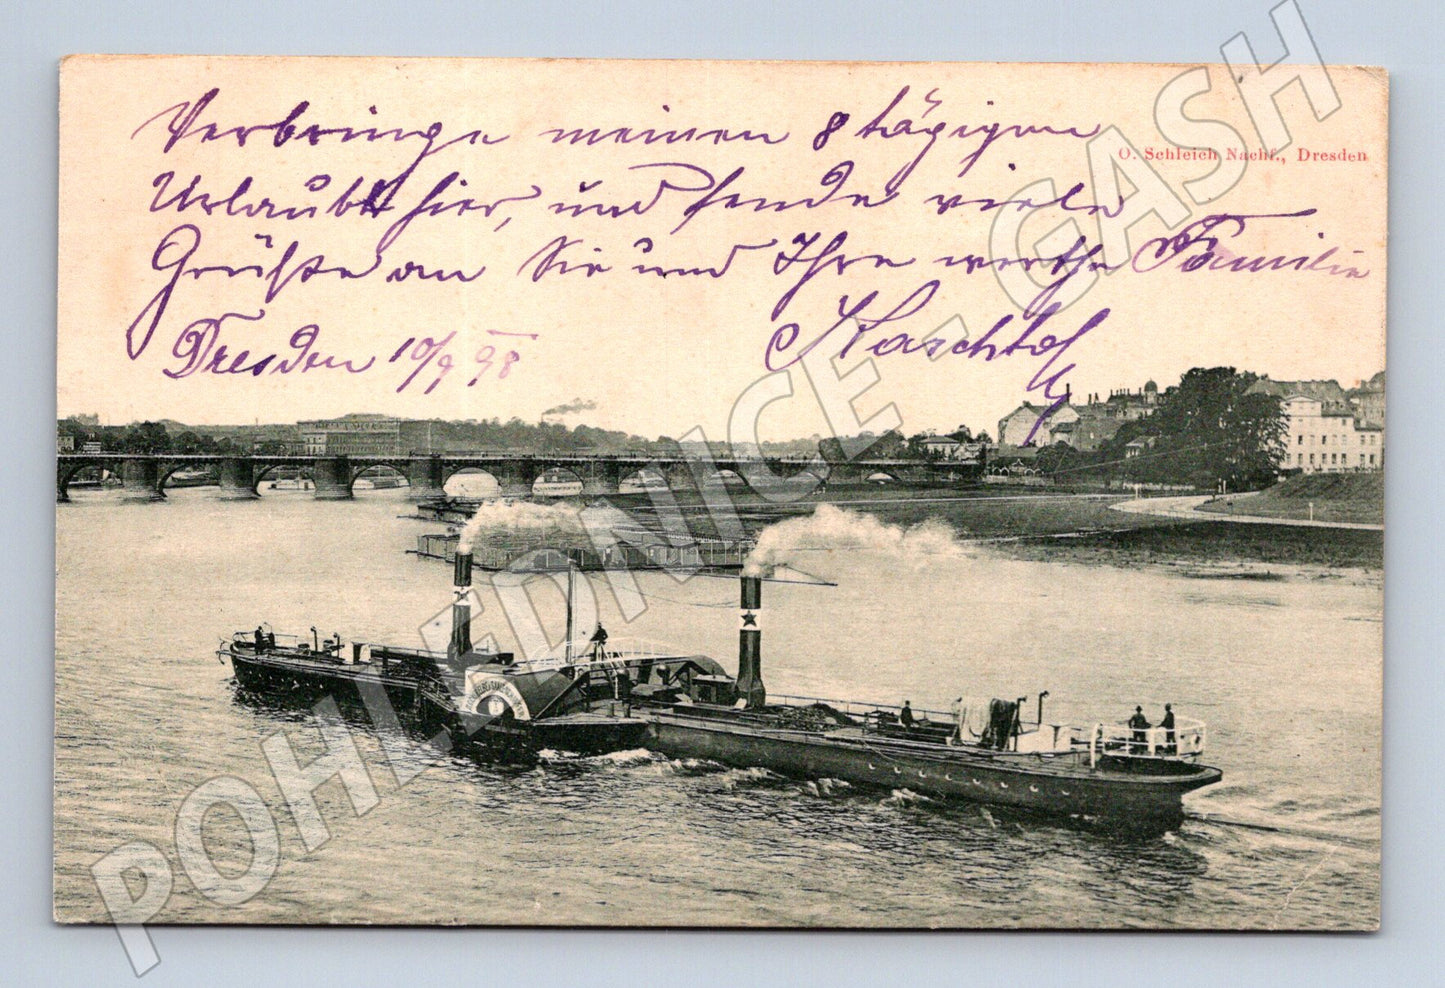 Verbringe meinen 8 tägigen
O. Schleich Nachf., Dresden
Urlaub hier, und sende viele
Grüße an Sie und Ihre werthe Familie
Dresden 10/9 98
POHLEDNICE-GASH